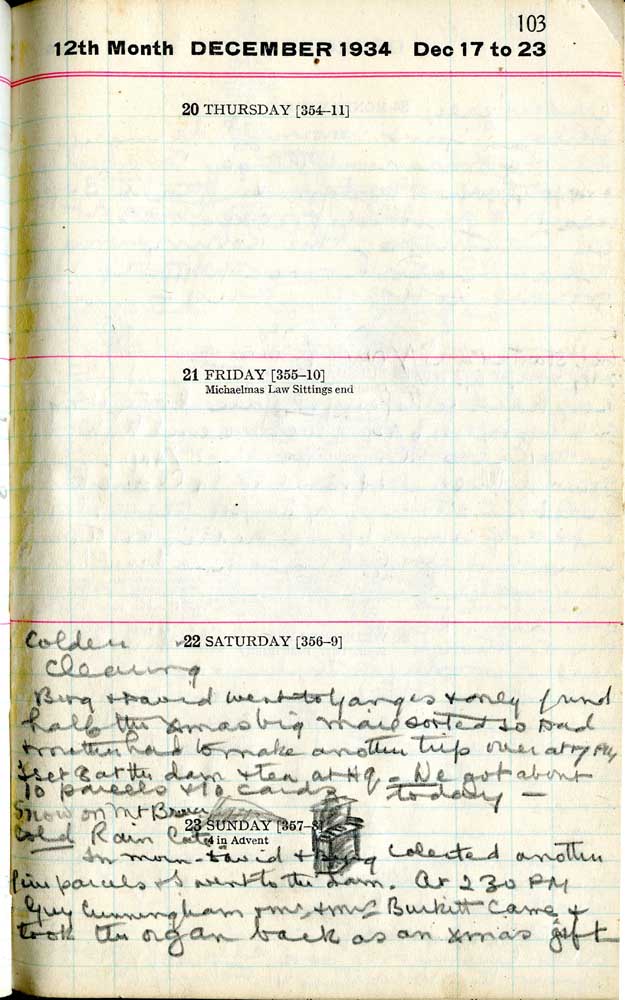 103
12th Month DECEMBER 1934 Dec 17 to 23
20 THURSDAY [354–11]
21 FRIDAY [355–10]
Michaelmas Law Sittings end
Colder 22 SATURDAY [356–9]
Clearing
+ David went to Ganges + only found
half the Xmas big mail sorted so Dad
+ mother had to make another trip over at 7 PM
at the dam + tea at HQ. We got about
10 parcels + 10 cards today —
Snow on Mt Bruce
23 SUNDAY [357–8]
Cold Rain Later
4 in Advent
In morn David + colected another
five parcels + I went to the dam. At 2 30 PM
Guy Cunningham + mr + mrs Burkitt came +
took the organ back as an xmas gift